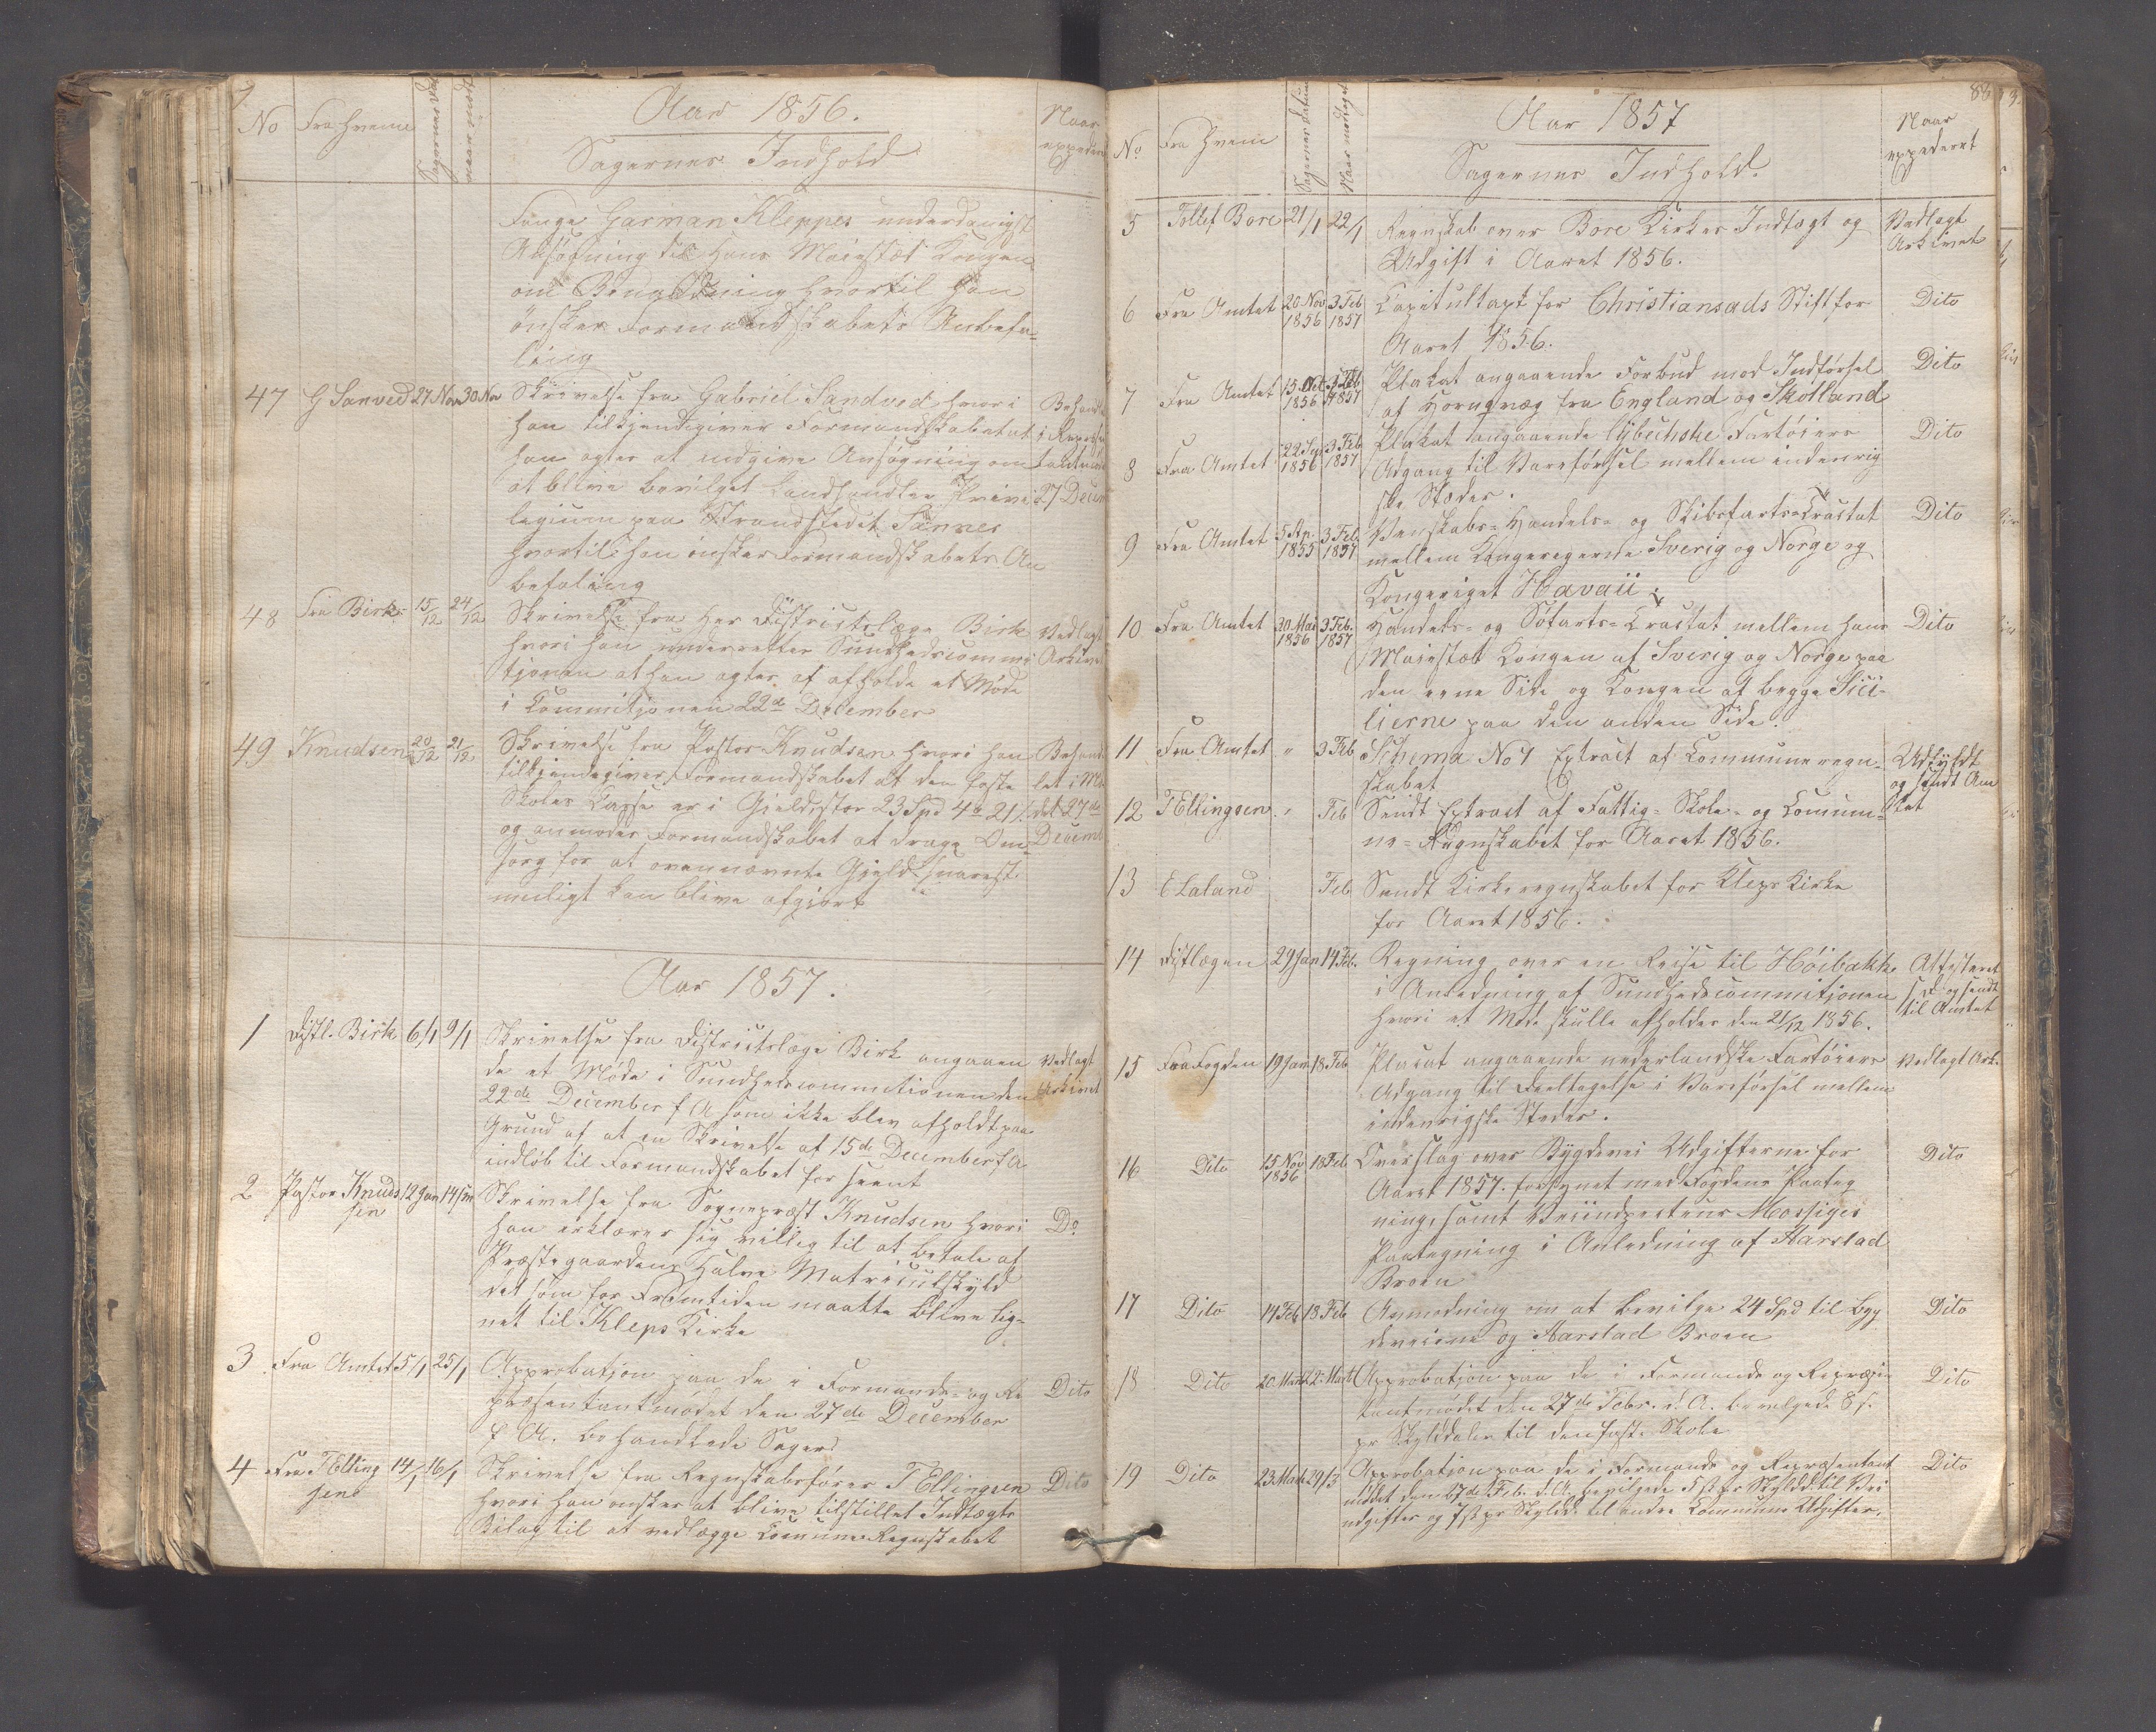 Aar 1856.
No Fra Hvem Naar expederet
Sagernes Indhold
Fange Garman Kleppes underdanigst
Ansøgning til Hans Maiestæt Kongen
om Benaadning hvortil han
ønsker Formandskabets Anbefa-
ling
47 G Sanved 27 Nov 30 Nov Skrivelse fra Gabriel Sandved hvori
han tilkjendegiver Formandskabet at
han agter at indgive Ansøgning om
at blive bevilget Landhandler Privi-
27 Decem
legium paa Strandstedet Sannes
hvortil han ønsker Formandskabets An
befaling
48 Fra Birk 15/12 24/12 Skrivelse fra Her Districtslæge Birk Vedlagt
hvori han underretter Sundhedscommi Arkivet
tjonen at han agter at afholde et Møde
i Commitjonen 22de December
49 Knudsen 20/12 21/12 Skrivelse fra Pastor Knudsen hvori han
tilkjendegiver Formandskabet at den faste
Skoles Casse er i Gjeld stor 23 Spd 4 21/. det 27de
og anmoder Formandskabet at drage Om- Decemb
sorg for at ovennævnte Gjeld snarest
muligt kan blive afgjort
Aar 1857.
1 Distl. Birk 6/1 9/1 Skrivelse fra Districtslæge Birk angaaen Vedlagt
de et Møde i Sundhedscommitionen den Arkivet
22de December f A som ikke blev afholdt paa
Grund af at en Skrivelse af 15de December f A
indløb til Formandskabet for seent
2 Pastor Knud- 12 Jan 14 Jan Skrivelse fra Sognepræst Knudsen hvori Do
sen
han erklærer sig villig til at betale af
Præstegaardens halve Matriculskyld
det som for Fremtiden maatte blive lig-
net til Kleps Kirke
3 Fra Amtet 15/1 25/1 Approbatjon paa de i Formands- og Re Dito
præsentantmødet den 27de December
f A. behandlede Sager
4 Fra T Elling 14/1 16/1 Skrivelse fra Regnskabsfører T Ellingsen Dito
sen
hvori han ønsker at blive tilstillet Indtægts
Bilag til at vedlægge Comune Regnskabet
88
Aar 1857
No Fra Hvem Sagernes Datum Naar modtaget Naar expederet
Sagernes Indhold.
5 Tollef Bore 21/1 22/1 Regnskab over Bore Kirkes Indtægt og Vedlagt
Udgift i Aaret 1856. Arkivet
6 Fra Amtet 20 Nov 1856 3 Feb 1857 Capitultaxt for Christiansads Stift for Dito
Aaret 1856.
7 Fra Amtet 1856 3 Feb 1857 Plakat angaaende Forbud mod Indførsel Dito
af Hornqvæg fra England og Skotland
8 Fra Amtet 22 Sep 1856 3 Feb 1857 Plakat angaaende lybechske Fartøiers Dito
Adgang til Vareførsel mellem indenrig
ske Steder.
9 Fra Amtet 5 Ap. 1855 3 Feb 1857 Venskabs- Handels- og Skibsfarts-Tractat Dito
mellem Kongerigerne Sverig og Norge og
Kongeriget Havaii.
10 Fra Amtet 20 Mai 1856 3 Feb. 1857 Handels- og Søfarts-Tractat mellem Hans Dito
Maiestæt Kongen af Sverig og Norge paa
den eene Side og Kongen af begge Sici-
lierne paa den anden Side.
11 Fra Amtet " 3 Feb Schema No 1 Extract af Communeregn- Udfyldt
skabet og sendt Am
12 T Ellingsen " Feb Sendt Extract af Fattig- Skole- og Commu- tet
ne-Regnskabet for Aaret 1856.
13 E Laland Feb Sendt Kirkeregnskabet for Kleps Kirke
for Aaret 1856.
14 Distlægen 29 Jan 14 Feb. Regning over en Reise til Høibakke Attesteret
i Anledning af Sundhedscommitjonen og sendt
hvori et Møde skulle afholdes den 21/12 1856. til Amtet
15 Fra Fogden 19 Jan 18 Feb Placat angaaende nederlandske Fartøiers Vedlagt Ark.
Adgang til Deeltagelse i Vareførsel mellem
indenrigske Steder.
16 Dito 15 Nov 1856 18 Feb Overslag over Bygdevei Udgifterne for Dito
Aaret 1857. forsynet med Fogdens Paateg
ning, samt Veiinspecteur Mossiges
Paategning i Anledning af Aarstad
Broen
17 Dito 14 Feb 18 Feb Anmodning om at bevilge 24 Spd til Byg Dito
deveiene og Aarstad Broen
18 Dito Approbatjon paa de i Formands og Repræsen Dito
tantmødet den 27de Febr. d. A. bevilgede 8 s.
pr Skylddaler til den faste Skole
19 Dito 23 Marts 29/3 Approbatjon paa de i Formands og Repræsentant Dito
mødet den 27de Feb. d. A. bevilgede 5 s pr Skyldd. til Vei
udgifter og 7 s pr Skyldd. til andre Commune Udgifter.